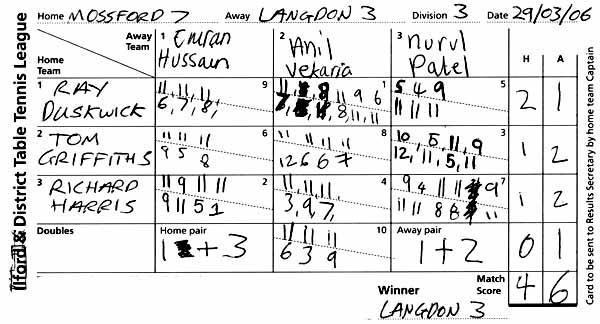 Ilford & District Table Tennis League
Home MOSSFORD 7 Away LANGDON 3 Division 3 Date 29/03/06
Home Team Away Team 1 Emran Hussain 2 Anil Vekaria 3 Nurul Patel H A
1 RAY DUSKWICK 9 1 5 2 1
11, 11, 11 8 11 9 6 5 4 9
6, 7, 8, 8, 11, 11 11 11 11
2 TOM GRIFFITHS 6 8 3 1 2
11 11 11 11 11 11 11 10, 5, 11, 9
9 5 8 12 6 6 7 12, 11, 5, 11
3 RICHARD HARRIS 2 4 7 1 2
11 9 11 11 11 11 11 9 4 11 11 9
9 11 5 1 3, 9, 7, 11 11 8 8 11
Doubles Home pair 10 Away pair 0 1
1 + 3 11 11 11 1 + 2
6 3 9
Winner Match Score 4 6
LANGDON 3
Card to be sent to Results Secretary by home team Captain